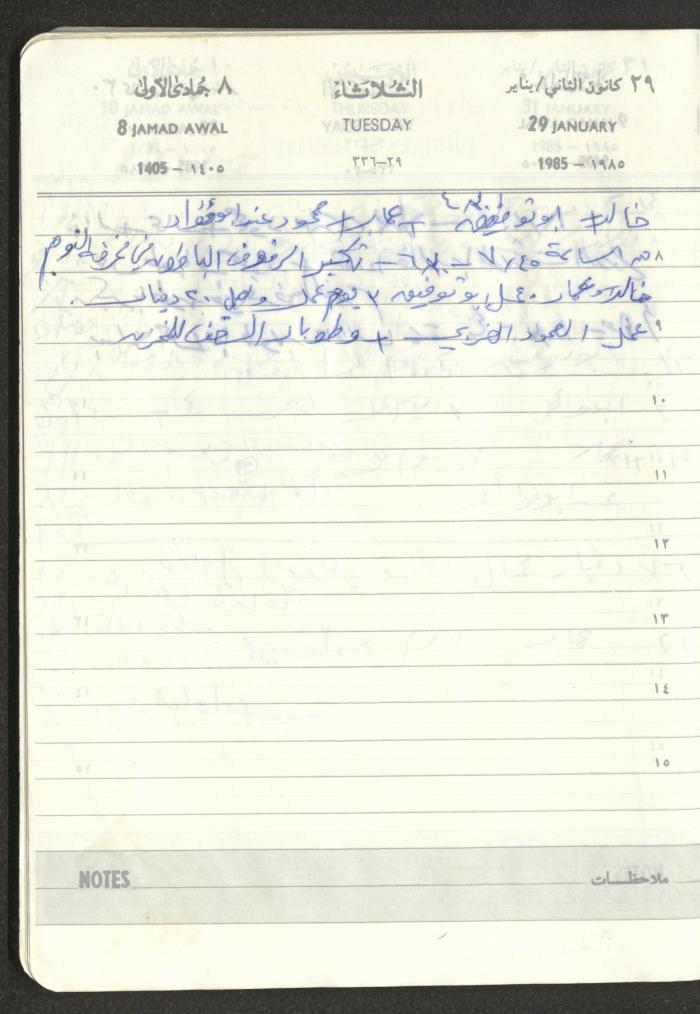 ٢٩ كانون الثاني / يناير الثلاثاء ٨ جمادى الأولى
29 JANUARY TUESDAY 8 JAMAD AWAL
1985 - ١٩٨٥ ٢٩-٣٣٦ 1405 - ١٤٠٥
خالد + ابو توفيق + عمار + محمود عند ابو فؤاد
٨ من الساعة - تكسير الرفوف الباطون في غرفة النوم
خالد وعمار ابو توفيق ٣ يوم عمل ٢٠ دينار
٩ عمل العمود الغربي + وطوبار السقف للخزين
١٠
١١
١٢
١٣
١٤
١٥
ملاحظات NOTES